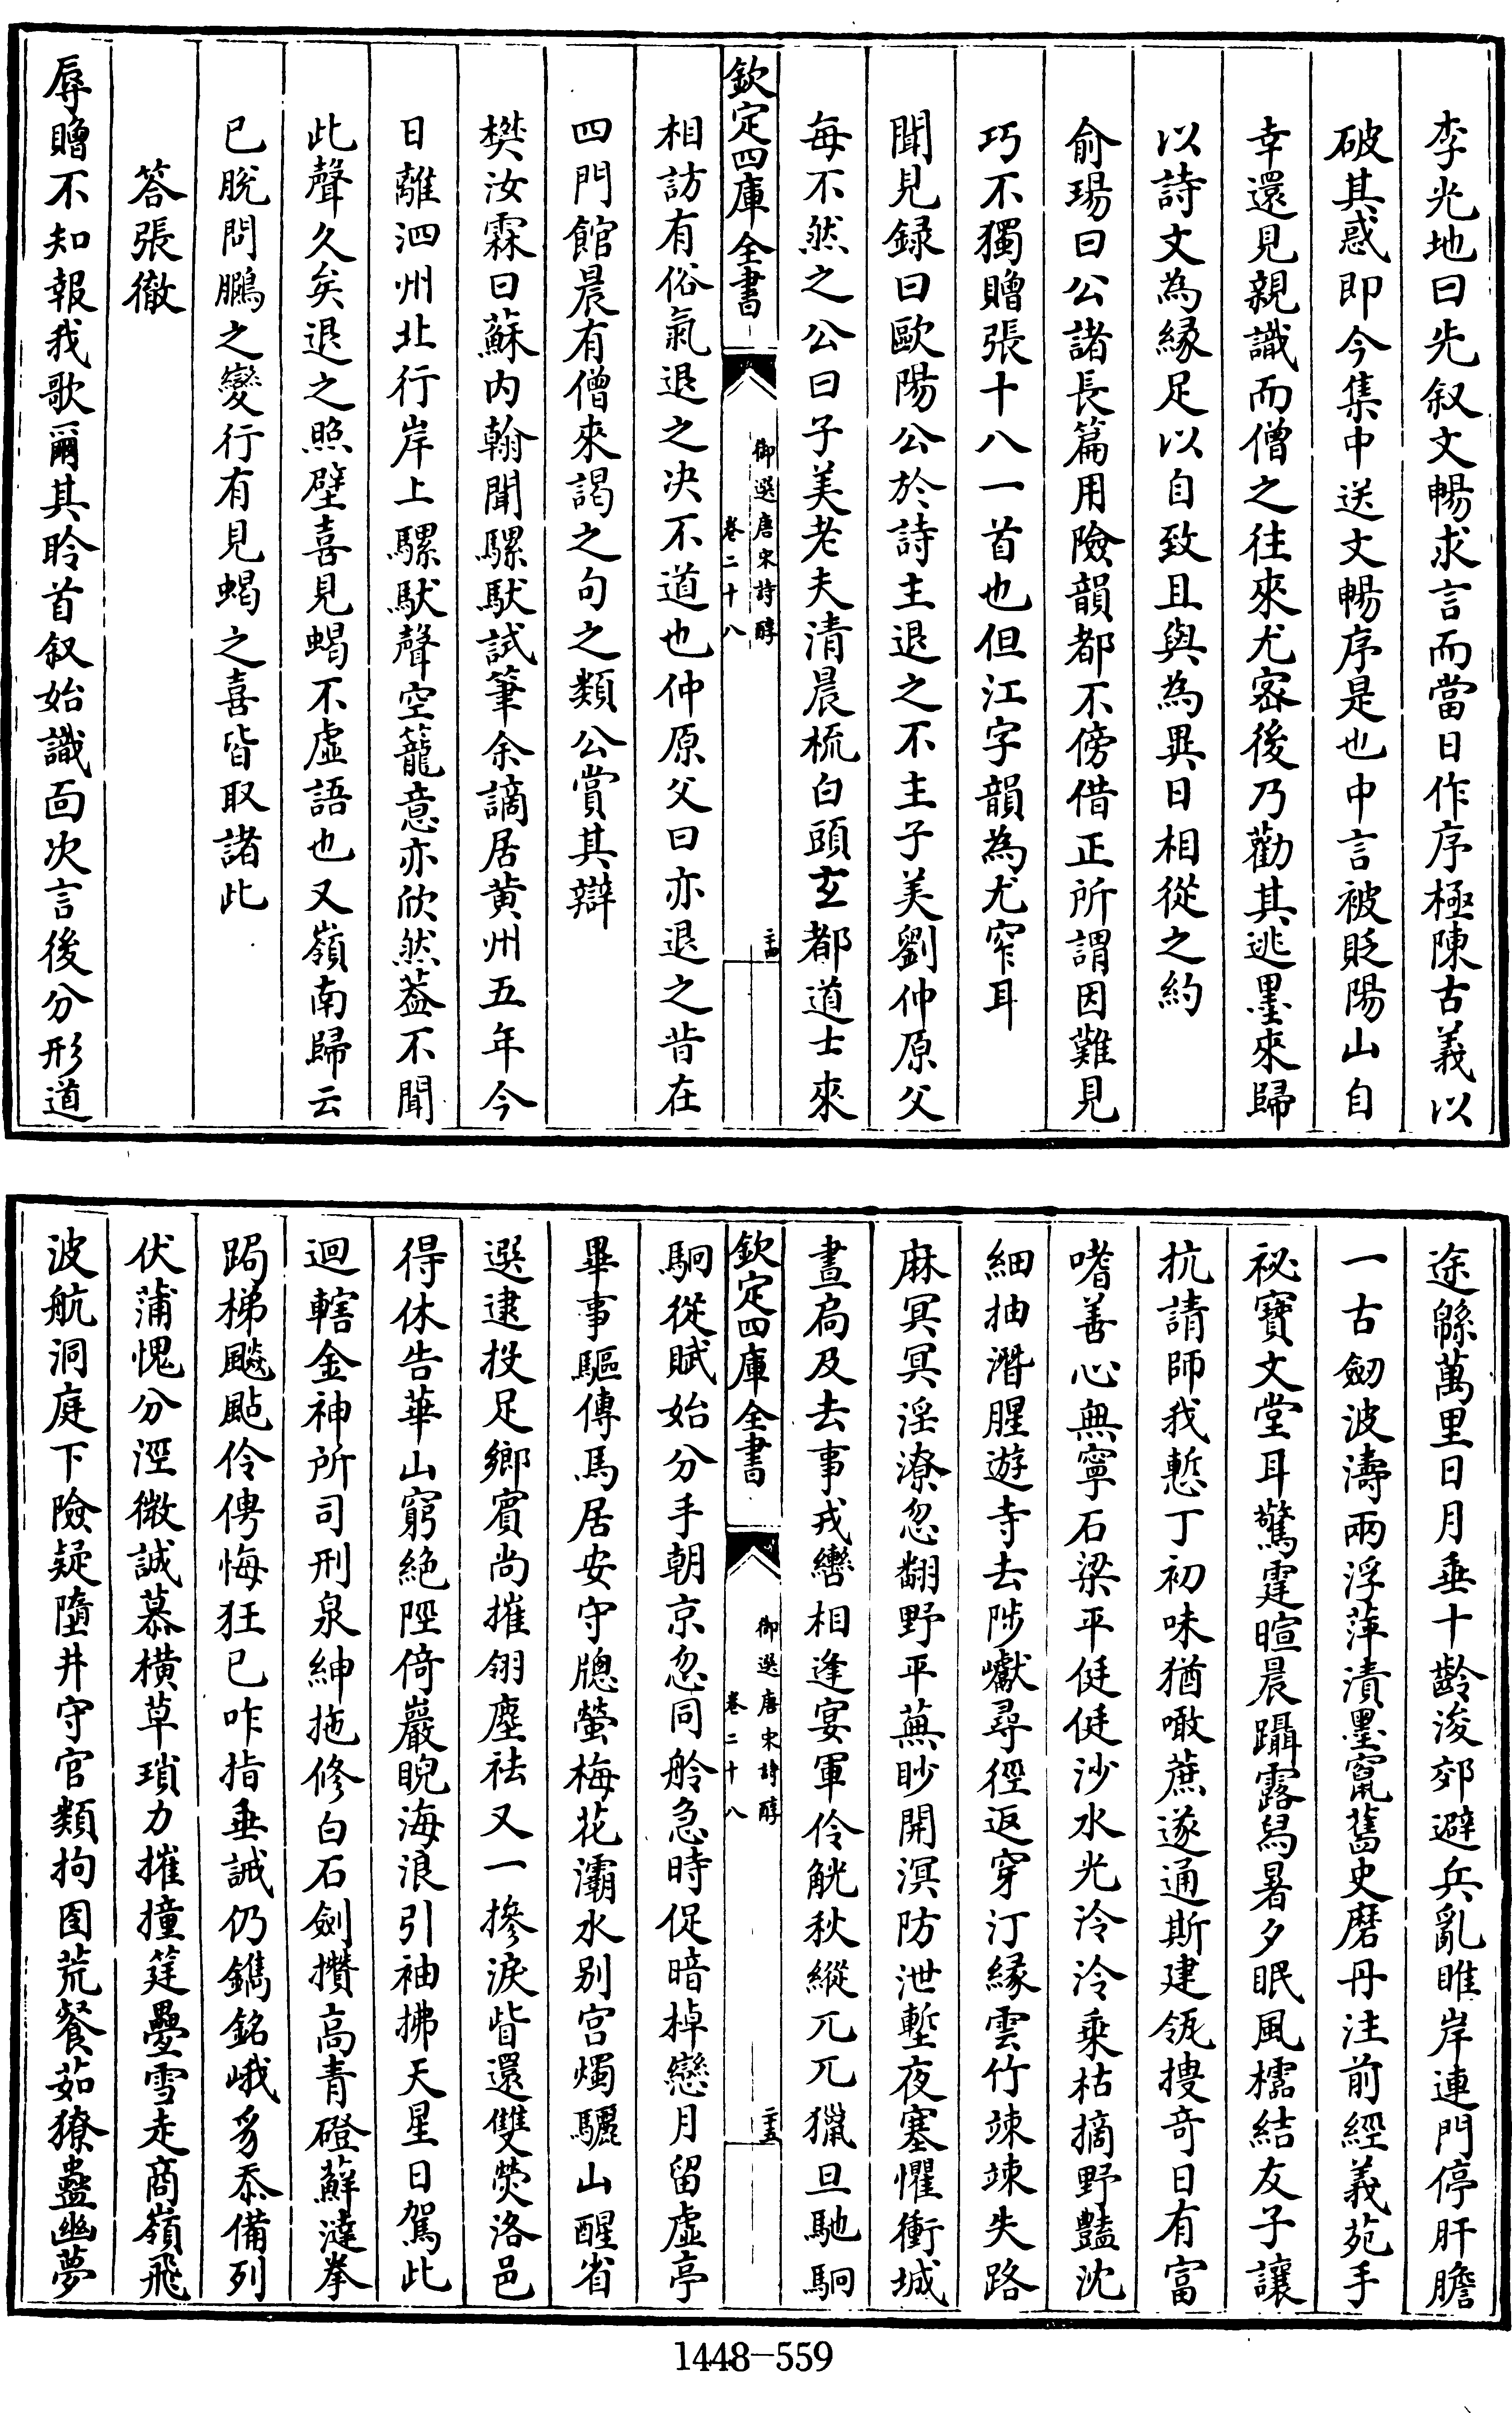 李光地曰先叙文暢求言而當日作序極陳古義以
破其惑即今集中送文暢序是也中言被貶陽山自
幸還見親識而僧之往來尤密後乃勸其逃墨來歸
以詩文為緣足以自致且與為異日相從之約
俞瑒曰公諸長篇用險韻都不傍借正所謂因難見
巧不獨贈張十八一首也但江字韻為尤窄耳
聞見録曰歐陽公於詩主退之不主子美劉仲原父
每不然之公曰子美老夫清晨梳白頭玄都道士來
欽定四庫全書
御選唐宋詩醇
卷二十八
相訪有俗氣退之決不道也仲原父曰亦退之昔在
四門館晨有僧來謁之句之類公賞其辯
樊汝霖曰蘇内翰聞騾馱試筆余謫居黄州五年今
日離泗州北行岸上騾馱聲空籠意亦欣然葢不聞
此聲久矣退之照壁喜見蝎不虛語也又嶺南歸云
已脫問鵩之變行有見蝎之喜皆取諸此
答張徹
辱贈不知報我歌爾其聆首叙始識面次言後分形道
途緜萬里日月垂十齡浚郊避兵亂睢岸連門停肝膽
一古劒波濤兩浮萍漬墨竄舊史磨丹注前經義苑手
祕寶文堂耳驚霆暄晨躡露舄暑夕眠風櫺結友子讓
抗請師我慙丁初味猶噉蔗遂通斯建瓴搜奇日有富
嗜善心無寧石梁平侹侹沙水光泠泠乘枯摘野豔沈
細抽潛腥遊寺去陟巘尋徑返穿汀緣雲竹竦竦失路
麻冥冥淫潦忽翻野平蕪眇開溟防泄塹夜塞懼衝城
晝扃及去事戎轡相逢宴軍伶觥秋縱兀兀獵旦馳駉
欽定四庫全書
御選唐宋詩醇
卷二十八
駉從賦始分手朝京忽同舲急時促暗棹戀月留虛亭
畢事驅傳馬居安守牕螢梅花灞水別宫燭驪山醒省
選逮投足鄉賓尚摧翎塵祛又一摻淚眥還雙熒洛邑
得休告華山窮絶陘倚巖睨海浪引袖拂天星日駕此
迴轄金神所司刑泉紳拖修白石劍攢高青磴蘚澾拳
跼梯飇颭伶俜悔狂已咋指垂誡仍鐫銘峨豸忝備列
伏蒲愧分涇微誠慕橫草瑣力摧撞筳疊雪走商嶺飛
波航洞庭下險疑墮井守官類拘囹荒餐茹獠蠱幽夢
1448—559